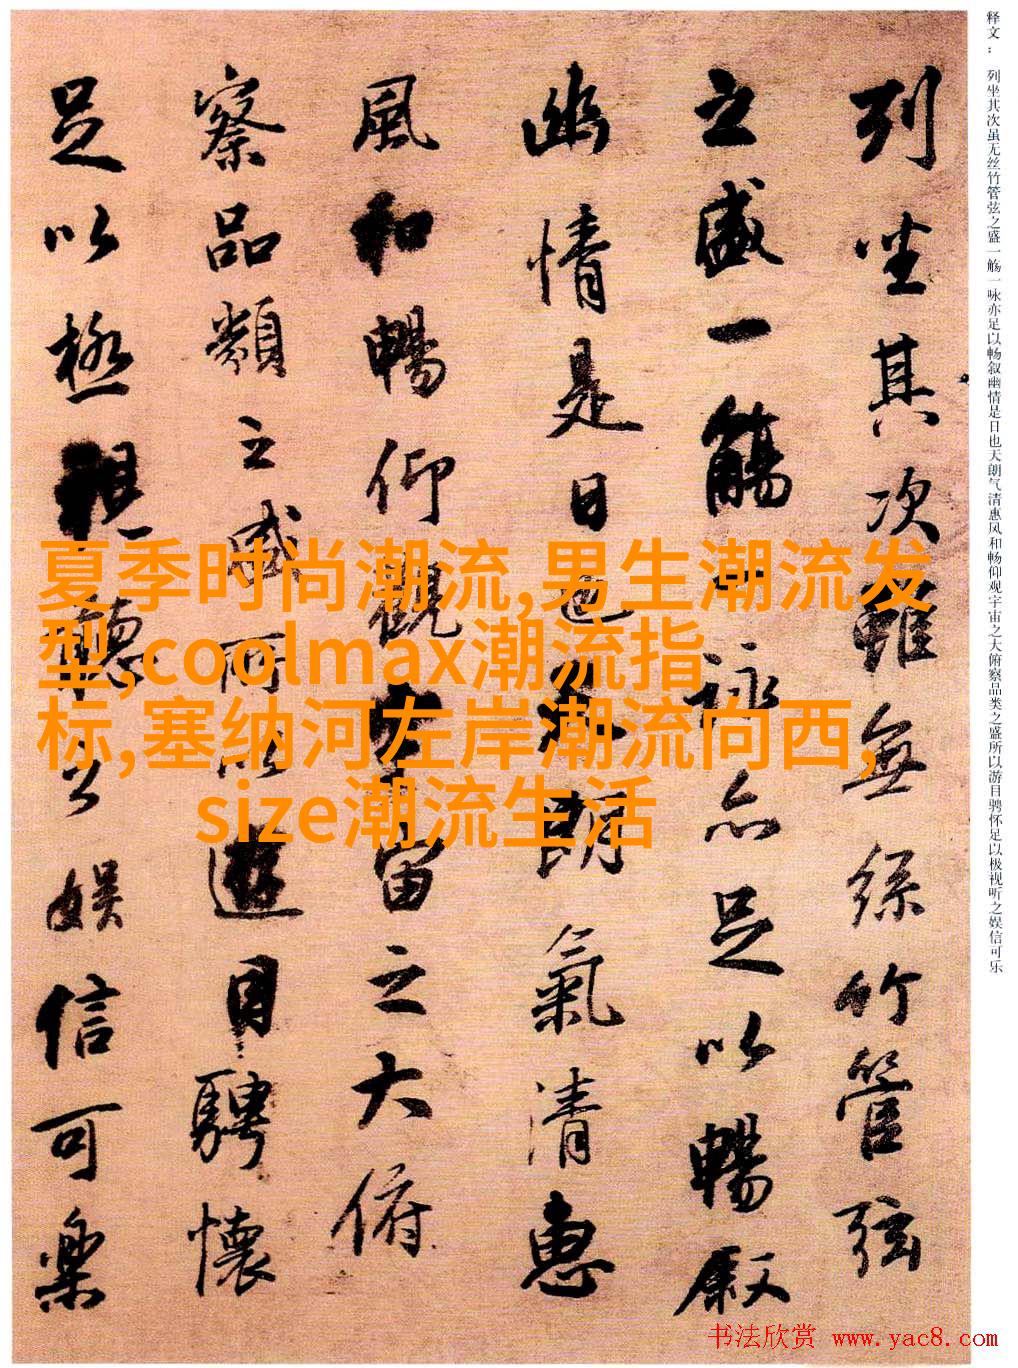 释文：列坐其次虽无丝竹管弦之盛一觞一咏亦足以畅叙幽情是日也天朗气清惠风和畅仰观宇宙之大俯察品类之盛所以游目骋怀足以极视听之娱信可乐
列坐其次雖無絲竹管弦
之盛一觴一詠亦足以暢叙
幽情是日也天朗氣清惠
風和暢仰觀宇宙之大俯
察品類之盛所以遊目騁懷
足以極視聽之娛信可樂
夏季时尚潮流,男生潮流发
型,coolmax潮流指
标,塞纳河左岸潮流向西,
size潮流生活
书法欣赏 www.yac8.com